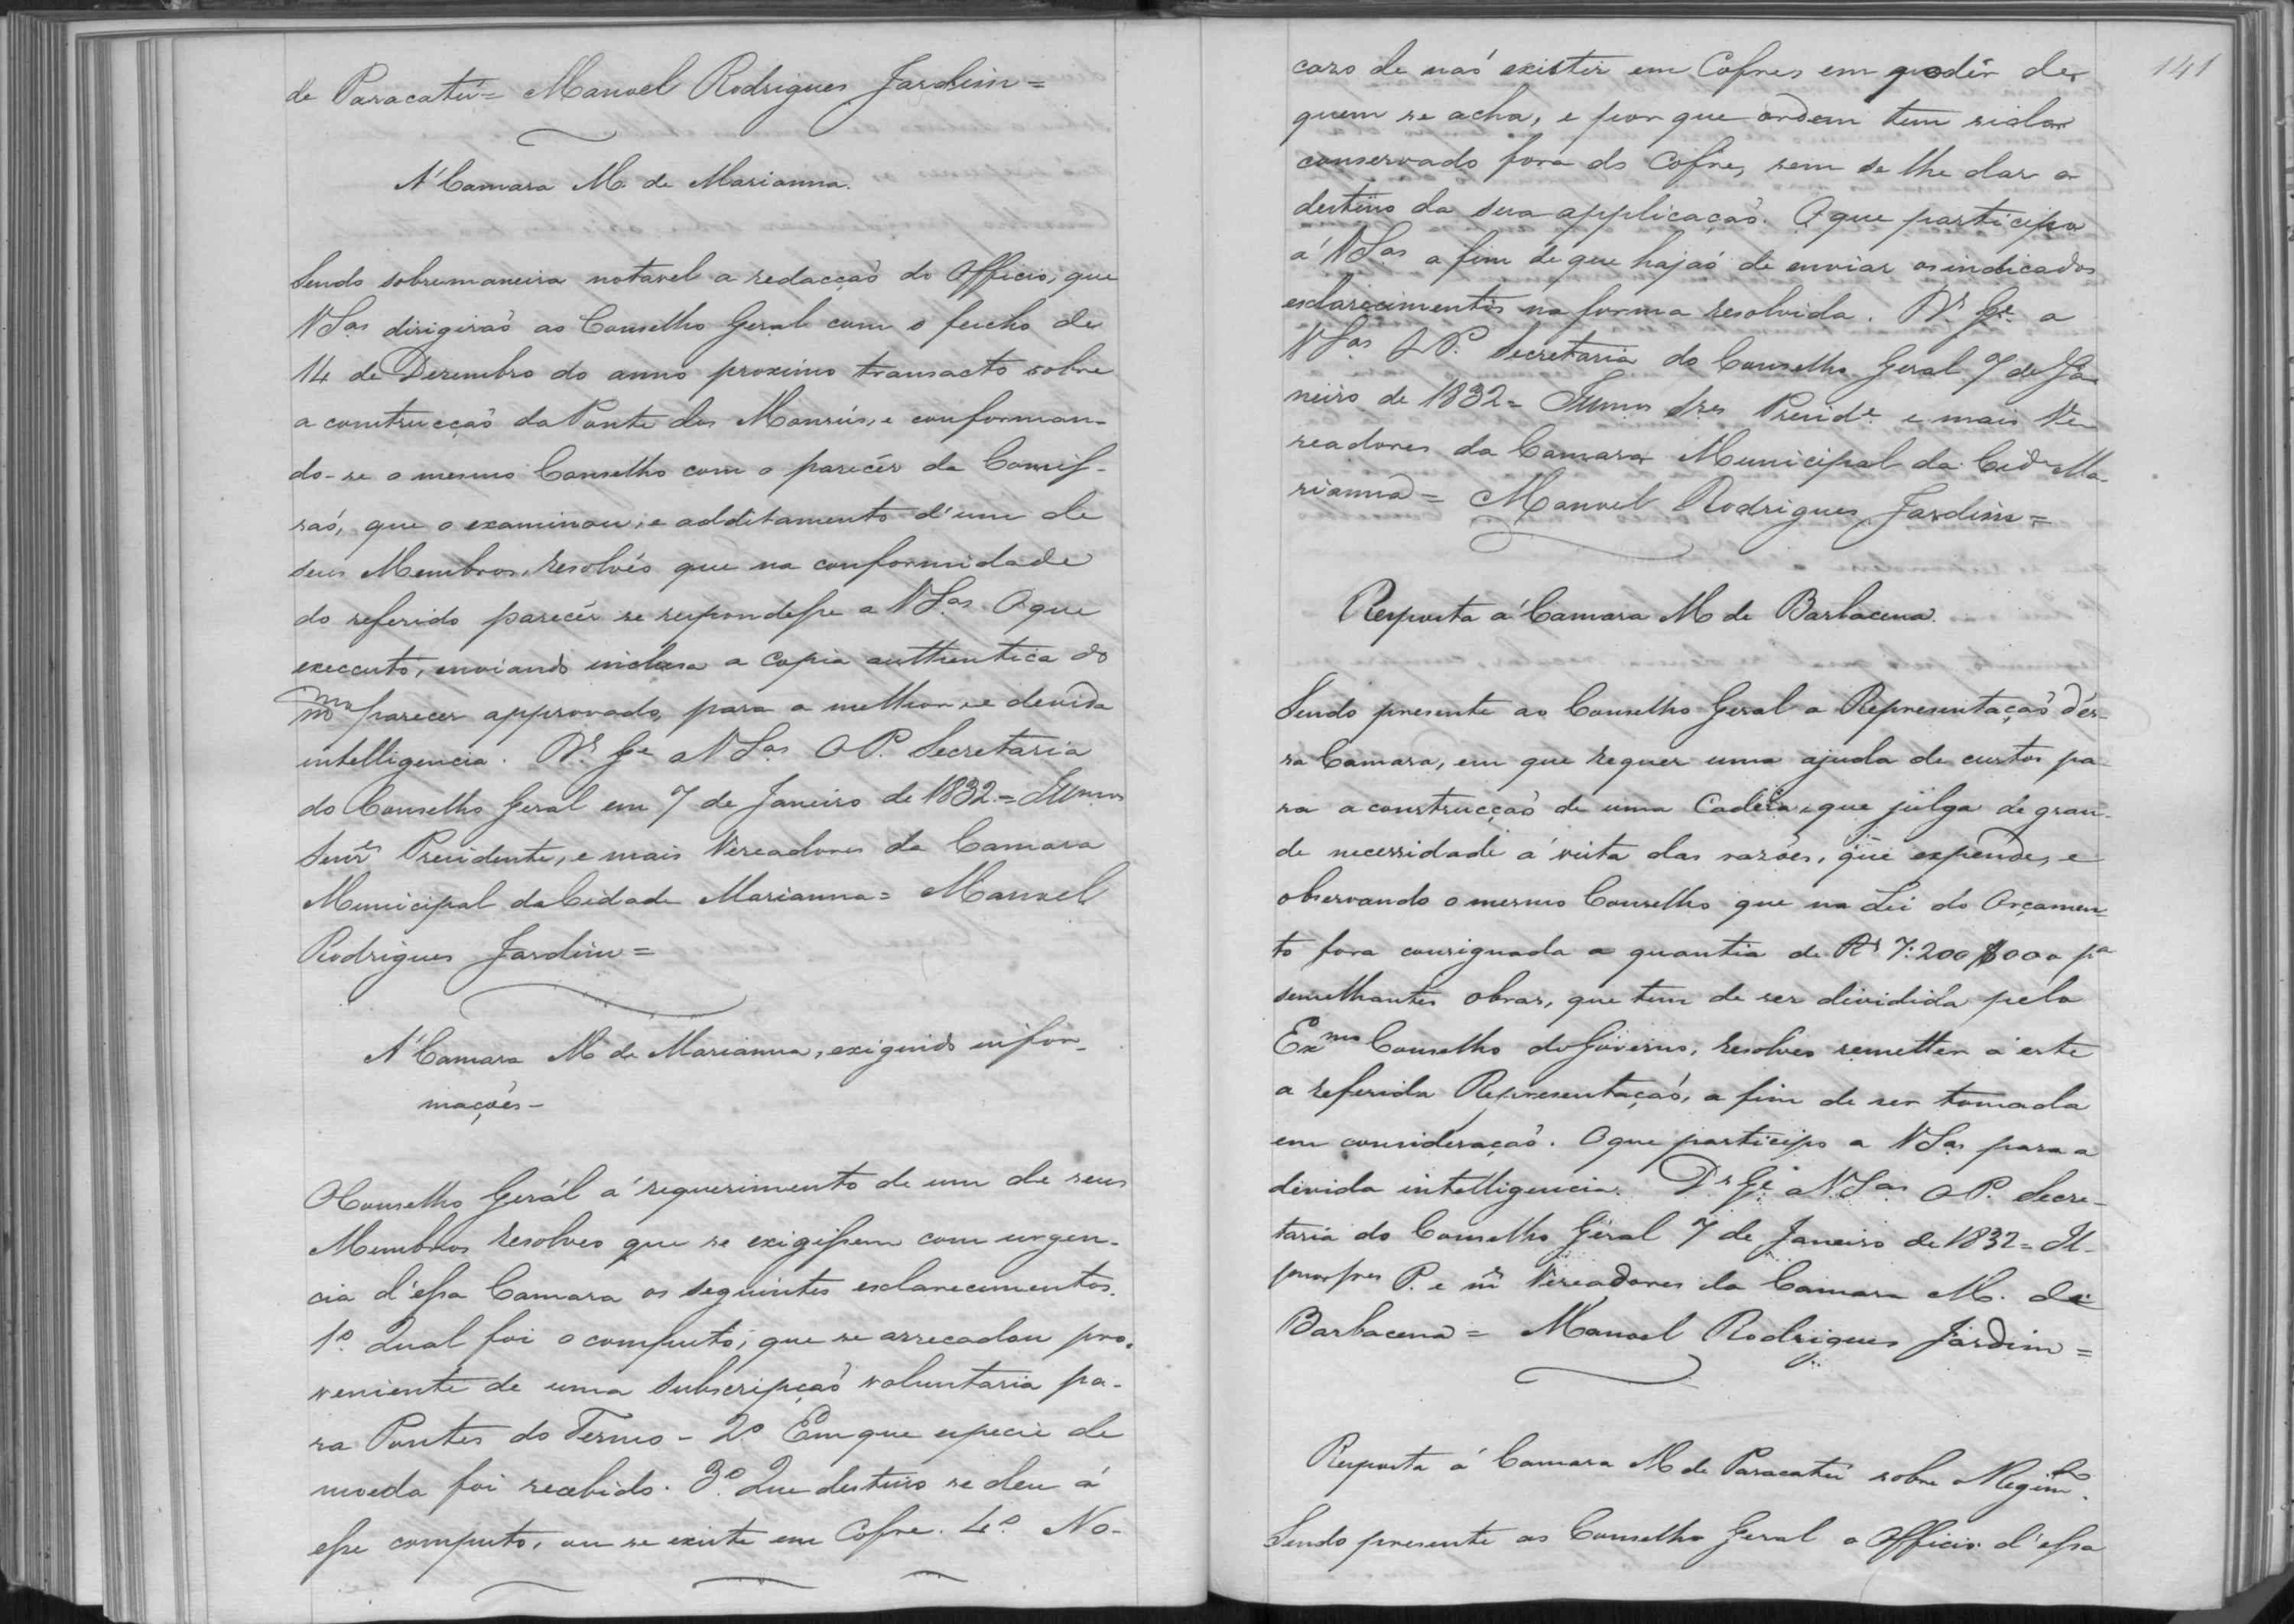 de Paracatú = Manoel Rodrigues Jardim =
A' Camara M. de Marianna.
Sendo sobremaneira notavel a redacção do Officio, que
V Sas dirigiraõ ao Conselho Geral com o fecho de
14 de Dezembro do anno proximo transacto sobre
a construcçaõ da Ponte dos Monsús, e conforman-
do-se o mesmo Conselho com o parecêr da Comis-
saõ, que o examinou, e additamento d'um de
seus Membros, resolvêo que na conformidade
do referido parecêr se respondesse a V Sas O que
executo, enviando inclusa a copia authentica do
mmo parecer approvado, para a melhor, e devida
intelligencia. Ds Ge a V Sas A P. Secretaria
do Conselho Geral em 7 de Janeiro de 1832 = Illmos
Senrs Presidente, e mais Vereadores da Camara
Municipal da Cidade Marianna = Manoel
Rodrigues Jardim =
A' Camara M. de Marianna, exigindo infor-
mações -
O Conselho Gerál a' requerimento de um de seus
Membros resolveo que se exigissem com urgen-
cia d'essa Camara os seguintes esclarecimentos.
1º Qual foi o computo, que se arrecadou pro-
veniente de uma subscripçaõ voluntaria pa-
ra Pontes do Termo - 2º Em que especie de
moeda foi recebido. 3º Que destino se deu á
esse computo, ou se existe em Cofre. 4º No-
141
cazo de naõ existir em Cofres em podêr de
quem se acha, e por que ordem tem sido
conservado fora do Cofre, sem se lhe dar o
destino da sua applicaçaõ. O que participo
a' V Sas a fim de que hajaõ de enviar os indicados
esclarecimentos na forma resolvida. Ds Ge a
V Sas A P. Secretaria do Conselho Geral 7 de Ja-
neiro de 1832 = Illmos Sres Preside e mais Ve-
readores da Camara Municipal da Cide Ma-
rianna = Manoel Rodrigues Jardim =
Resposta a' Camara M de Barbacena.
Sendo presente ao Conselho Geral a Representaçaõ d'es-
sa Camara, em que requer uma ajuda de custos pa-
ra a construcçaõ de uma Cadêia, que julga de gran-
de necessidade a' vista das razões, que expende, e
observando o mesmo Conselho que na Lei do Orçamen-
to fora consignada a quantia de Rs 7:200$000 pa
semelhantes obras, que tem de ser dividida pelo
Exmo Conselho do Governo, resolveo remetter a' este
a referida Representaçaõ, a fim de ser tomada
em consideraçaõ. O que participo a V Sas para a
devida intelligencia. Ds Ge a V. Sas A P. Secre-
taria do Conselho Geral 7 de Janeiro de 1832 = Il-
lmos Sres P. e ms Vereadores da Camara M. de
Barbacena = Manoel Rodrigues Jardim =
Resposta á Camara M de Paracatú sobre Regimto.
Sendo presente ao Conselho Geral o Officio d'essa